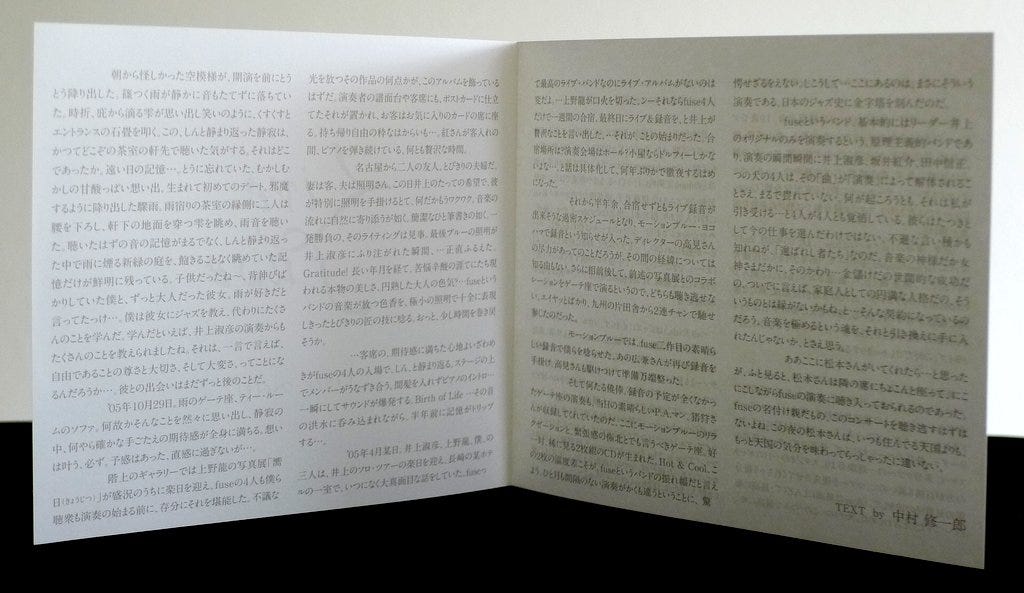 朝から怪しかった空模様が、開演を前にとう
とう降り出した。篠つく雨が静かに音もたてずに落ちてい
た。時折、庇から滴る雫が思い出し笑いのように、くすくすと
エントランスの石畳を叩く、この、しんと静まり返った静寂は、
かつてどこぞの茶室の軒先で聴いた気がする。それはどこ
であったか。遠い日の記憶…。とうに忘れていた、むかしむ
かしの甘酸っぱい想い出。生まれて初めてのデート。邪魔
するように降り出した驟雨。雨宿りの茶室の縁側に二人は
腰を下ろし、軒下の地面を穿つ雫を眺め、雨音を聴いて
た。聴いたはずの音の記憶がまるでなく、しんと静まり返っ
た中で雨に煙る新緑の庭を、飽きることなく眺めていた記
憶だけが鮮明に残っている。子供だったね〜、背伸びば
かりしていた僕と、ずっと大人だった彼女。雨が好きだと
言ってたっけ…。僕は彼女にジャズを教え、代わりにたくさ
んのことを学んだ。学んだといえば、井上淑彦の演奏からも
たくさんのことを教えられましたね。それは、一言で言えば、
自由であることの尊さと大切さ、そして大変さ、ってことにな
るんだろうか…。彼との出会いはまだずっと後のことだ。
'05年10月29日。雨のゲーテ座、ティー・ルー
ムのソファ。何故かそんなことを然々に思い出し、静寂の
中、何やら確かな手ごたえの期待感が全身に満ちる。想い
は叶う、必ず。予感はあった、直感に過ぎないが…。
階上のギャラリーでは上野龍の写真展「嚮
日(きょうじつ)」が盛況のうちに楽日を迎え、fuseの4人も僕ら
聴衆も演奏の始まる前に、存分にそれを堪能した。不議な
光を放つその作品の何点かが、このアルバムを飾っている
はずだ。演奏者の譜面台や客席にも、ポストカードに仕立
てたそれが置かれ、お客はお気に入りのカードの席に座
る。持ち帰り自由の粋なはからいも…。紅さんが客入れの
間、ピアノを弾き続けている。何とも贅沢な時間。
名古屋から二人の友人、とびきりの夫婦だ。
妻は客、夫は照明さん。この日井上のたっての希望で、彼
が特別に照明を手掛けるとて、何だかもうワクワク。音楽の
流れに自然に寄り添うが如く、簡潔なひと筆書きの如く、一
発勝負の、そのライティングは見事。最後ブルーの照明が
井上淑彦にふり注がれた瞬間、…正直ふるえた。
Gratitude! 長い年月を経て、苦悩辛酸の涯てにたち現
われる本物の美しさ、円熟した大人の色気?…fuseという
バンドの音楽が放つ色香を、極小の照明で十全に表現
しきったとびきりの匠の技に唸る。おっと、少し時間を巻き戻
そうか。
…客席の、期待感に満ちた心地よいざわめ
きがfuseの4人の入場で、しん、と静まり返る。ステージの上
でメンバーがうなずき合う。間髪を入れずピアノのイントロ…
一瞬にしてサウンドが爆発する。Birth of Life …その音
の洪水に呑み込まれながら、半年前に記憶がトリップ
する…。
'05年4月某日。井上淑彦、上野龍、僕、の
三人は、井上のソロ・ツアーの楽日を迎え、長崎の某ホテ
ルの一室で、いつになく大真面目な話をしていた。fuseっ
て最高のライブ・バンドなのにライブ・アルバムがないのは
変だよ…上野龍が口火を切った。ン〜それならfuse4人
だけで一週間の合宿。最終日にライブ&録音を、と井上が
贅沢なことを言い出した…それが、ことの始まりだった。合
宿場所は?演奏会場はホール?小屋ならドルフィーしかな
いよな…。と話は具体化して、何年ぶりかで徹夜するはめ
になった。
それから半年余、合宿せずともライブ録音が
出来そうな過密スケジュールとなり、モーションブルー・ヨコ
ハマで録音という知らせが入った。ディレクターの高見さん
の尽力があってのことだろうが、その間の経緯については
知る由もない。さらに即前後して、前述の写真展とのコラボ
レーションをゲーテ座で演るというので、どちらも聴き逃せな
い。エイヤッとばかり、九州の片田舎から2連チャンで馳せ
参じたのだった。
モーションブルーでは、fuse二作目の素晴ら
しい録音で僕らを唸らせた、あの広兼さんが再び録音を
手掛け、高見さんも駆けつけて準備万端整った。
そして何たる僥倖。録音の予定が全くなかっ
たゲーテ座の演奏も、当日の素晴らしいP.A.マン、猪狩さ
んが収録してくれていたのだ。ここにモーションブルーのリラ
クゼーションと、緊張感の極北とでも言うべきゲーテ座。好
一対、稀に見る2枚組のCDが生まれた。Hot & Cool、こ
の2枚の温度差こそが、fuseというバンドの振れ幅だと言え
よう。ひと月も間隔のない演奏がかくも違うということに、驚
愕せざるをえない。しこうして…ここにあるのは、まさにそういう
演奏である。日本のジャズ史に金字塔を刻んだのだ。
fuseというバンド。基本的にはリーダー井上
のオリジナルのみを演奏するという、原理主義的バンドであ
り、演奏の瞬間瞬間に井上淑彦、坂井紅介、田中信正、
つの犬の4人は、その「曲」が「演奏」によって解体されるこ
とさえ、まるで畏れていない。何が起ころうとも、それは私が
引き受ける…と4人が4人とも覚悟している。彼らはたつきと
して今の仕事を選んだわけではない。不遜な言い種かも
知れぬが、「選ばれし者たち」なのだ。音楽の神様だか女
神さまだかに。そのかわり…金儲けだの世間的な成功だ
の、ついでに言えば、家庭人としての円満な人格だの、そう
いうものとは縁がないからね、と…そんな契約になっているの
だろう。音楽を極めるという魂を、それと引き換えに手に入
れたんじゃないか、とさえ思う。
ああここに松本さんがいてくれたら…と思った
が、ふと見ると、松本さんは隣の席にちょこんと座って、にこ
にこしながらfuseの演奏に聴き入っておられるのであった。
fuseの名付け親だもの、このコンサートを聴き逃すはずは
ないよね。この夜の松本さんは、いつも住んでる天国よりも、
もっと天国の気分を味わってらっしゃったに違いない。
TEXT by 中村 修一郎